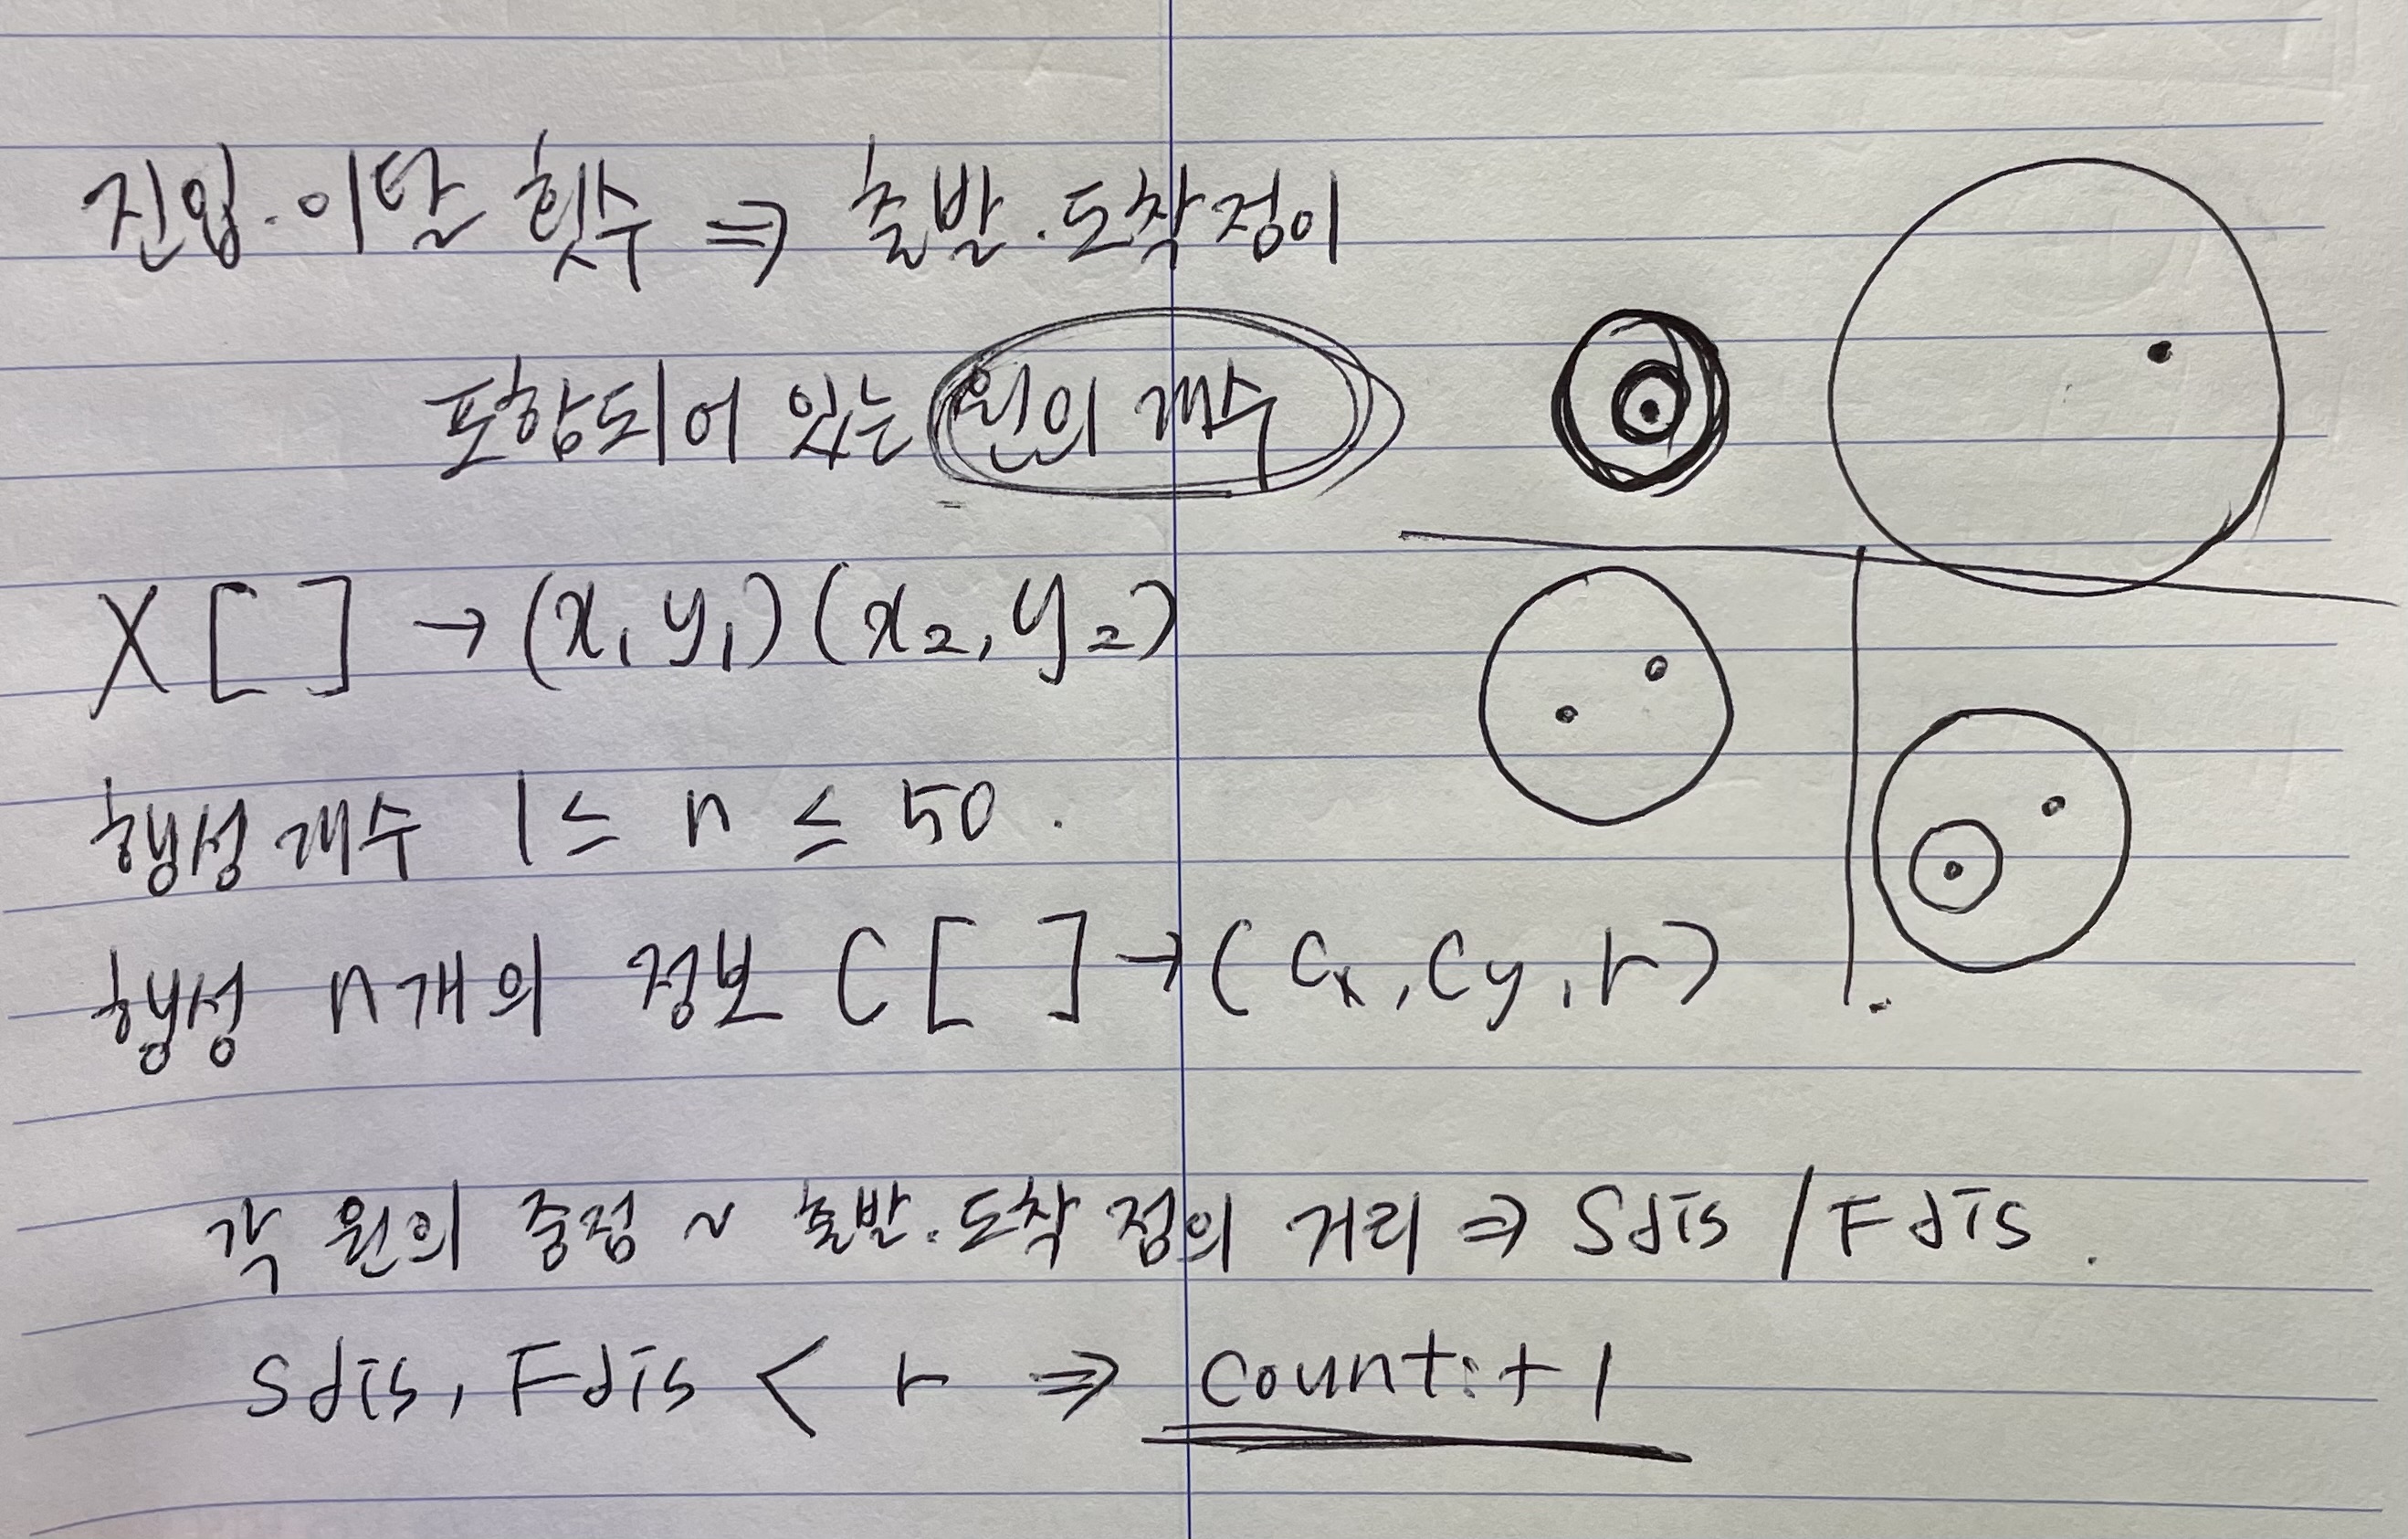 진입.이탈 횟수 ⇒ 출발.도착 점이
포함되어 있는 원의 개수
X [ ] → (x₁ y₁) (x₂, y₂)
행성 개수 1 ≤ n ≤ 50 .
행성 n개의 정보 C [ ] → ( Cx , Cy , r )
각 원의 중점 ~ 출발.도착 점의 거리 ⇒ Sdis / Fdis .
Sdis, Fdis < r ⇒ count: + 1